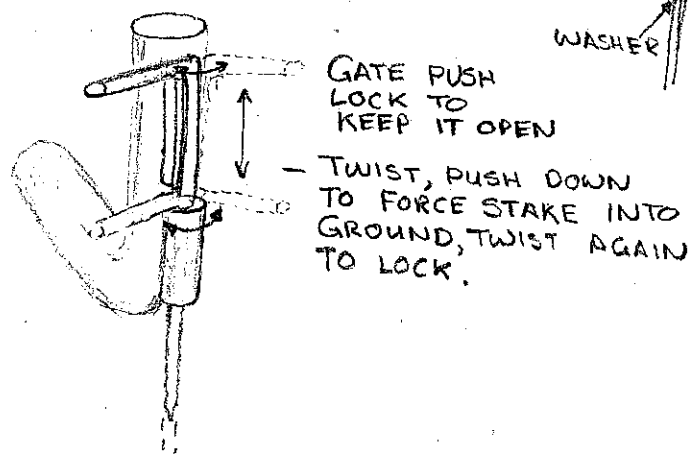 WASHER
GATE PUSH
LOCK TO
KEEP IT OPEN
- TWIST, PUSH DOWN
TO FORCE STAKE INTO
GROUND, TWIST AGAIN
TO LOCK.